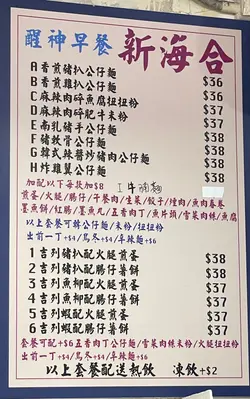 醒神早餐 新海合
A香煎豬扒公仔麵 $36
B香煎雞扒公仔麵 $36
C麻辣肉碎魚腐扭扭粉 $37
D麻辣肉碎肥牛米粉 $37
E南乳豬手公仔麵 $38
F豬軟骨公仔麵 $38
G韓式辣醬炒豬肉公仔麵 $38
H炸雞翼公仔麵 $38
加配以下每款加$8 I牛
煎蛋/火腿/腸仔/午餐肉/雪菜/餃子/墐肉/魚肉春卷
墨魚餅/紅腸/墨魚丸/五香肉丁/魚片頭/雪菜肉絲/魚腐
以上套餐可轉公仔麵/米粉/扭扭粉
出前一丁+$4/烏冬+$4/車辣麵+$6
1吉列豬扒配火腿煎蛋 $38
2吉列豬扒配腸仔薯餅 $38
3吉列魚柳配火腿煎蛋 $37
4吉列魚柳配腸仔薯餅 $37
5吉列蝦配火腿煎蛋 $37
6吉列蝦配腸仔薯餅 $37
套餐可配+$6五香肉丁公仔麵/雪菜肉絲米粉/火腿扭扭粉
出前一丁+$4/烏冬+$4/車辣麵+$6
以上套餐配送熱飲 凍飲+$2